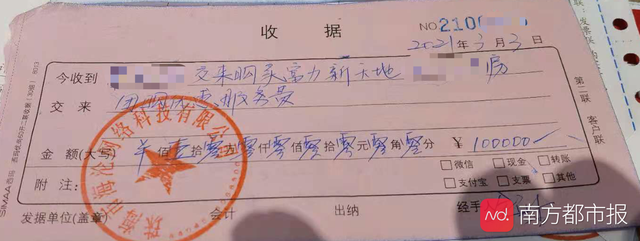 收 据
NO 2100
2021年3月3日
今收到 交来购买富力新天地 房
交来 团购优惠服务费
金额(大写) ¥佰壹拾零万零仟零佰零拾零元零角零分 ¥ 100000—
微信 现金 转账
附注: 支付宝 支票 其他
发据单位(盖章) 会计 出纳 经手
第二联 客户联
网络科技有限公司
SIMAA西玛
nd 南方都市报